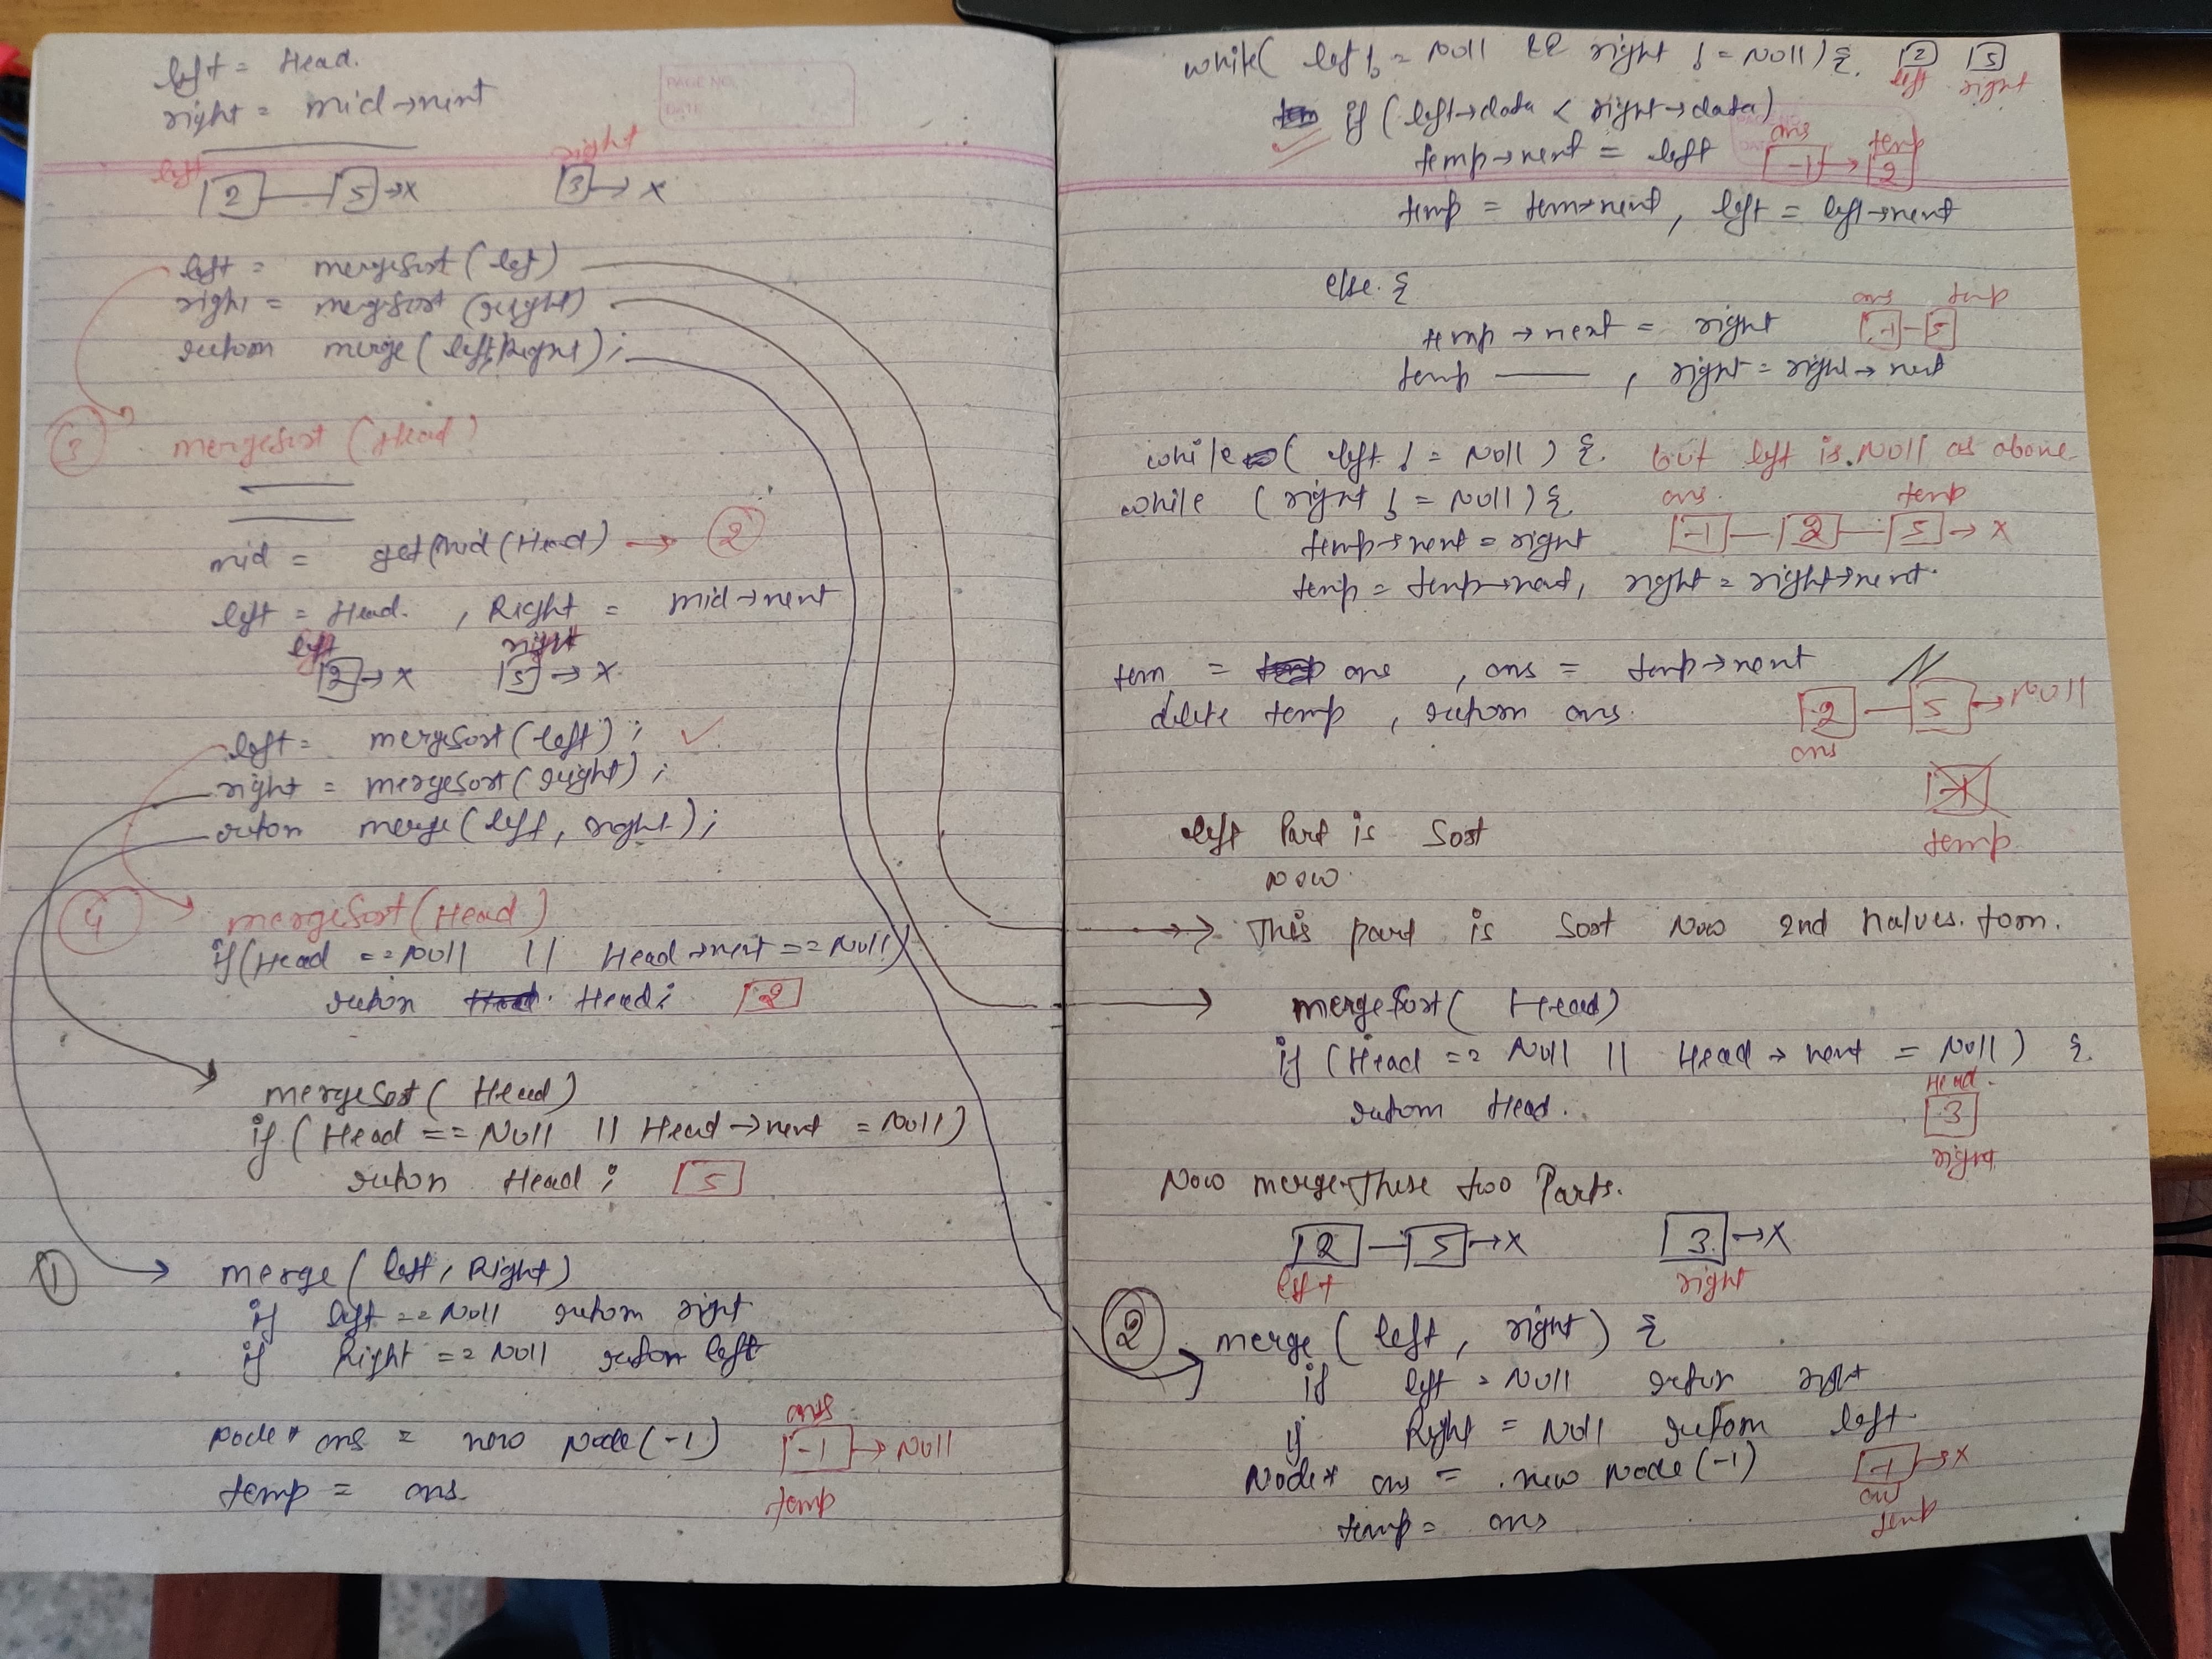 left = Head.
right = mid→next
PAGE NO.
DATE
left right
2 — 5 →x 3 → x
left = mergeSort(left)
right = mergesort (right)
return merge(left, Right);
3 mergeSort (Head)
mid = getMid(Head) → 2
left = Head. , Right = mid→next
left right
2 → x 5 → x
left = mergeSort(left);
right = mergeSort(right);
return merge(left, right);
4 mergeSort(Head)
if(Head == Null || Head→next == Null)
return Head; 2
mergeSort( Head)
if( Head == Null || Head→next = Null)
return Head; 5
1 merge( left, Right)
if left == Null return right
if Right == Null return left
ans
Node* ans = new Node(-1) -1 → Null
temp = ans. temp
while( left != Null && right != Null) { 2 5
left right
if (left→data < right→data)
ans temp
temp→next = left -1 → 2
temp = tem→next, left = left→next
else {
ans temp
temp → next = right -1 – 5
temp —— , right = right→next
while ( left != Null ) {. but left is Null as above
while ( right != Null) { ans. temp
temp→next = right -1 — 2 — 5 → x
temp = temp→next, right = right→next.
tem = ans , ans = temp→next
delete temp , return ans. 2 — 5 → Null
ans
-1
temp
left Part is Sort
now.
→ This part is Sort Now 2nd halves. torn.
mergeSort( Head)
if (Head == Null || Head → next = Null) {
Head.
return Head. 3
right
Now merge These two Parts.
2 — 5 →x 3. →x
left right
2 merge ( left , right) {
if left = Null return right
if Right = Null return left.
Node* ans = new Node(-1) -1 →x
ans
temp = ans temp